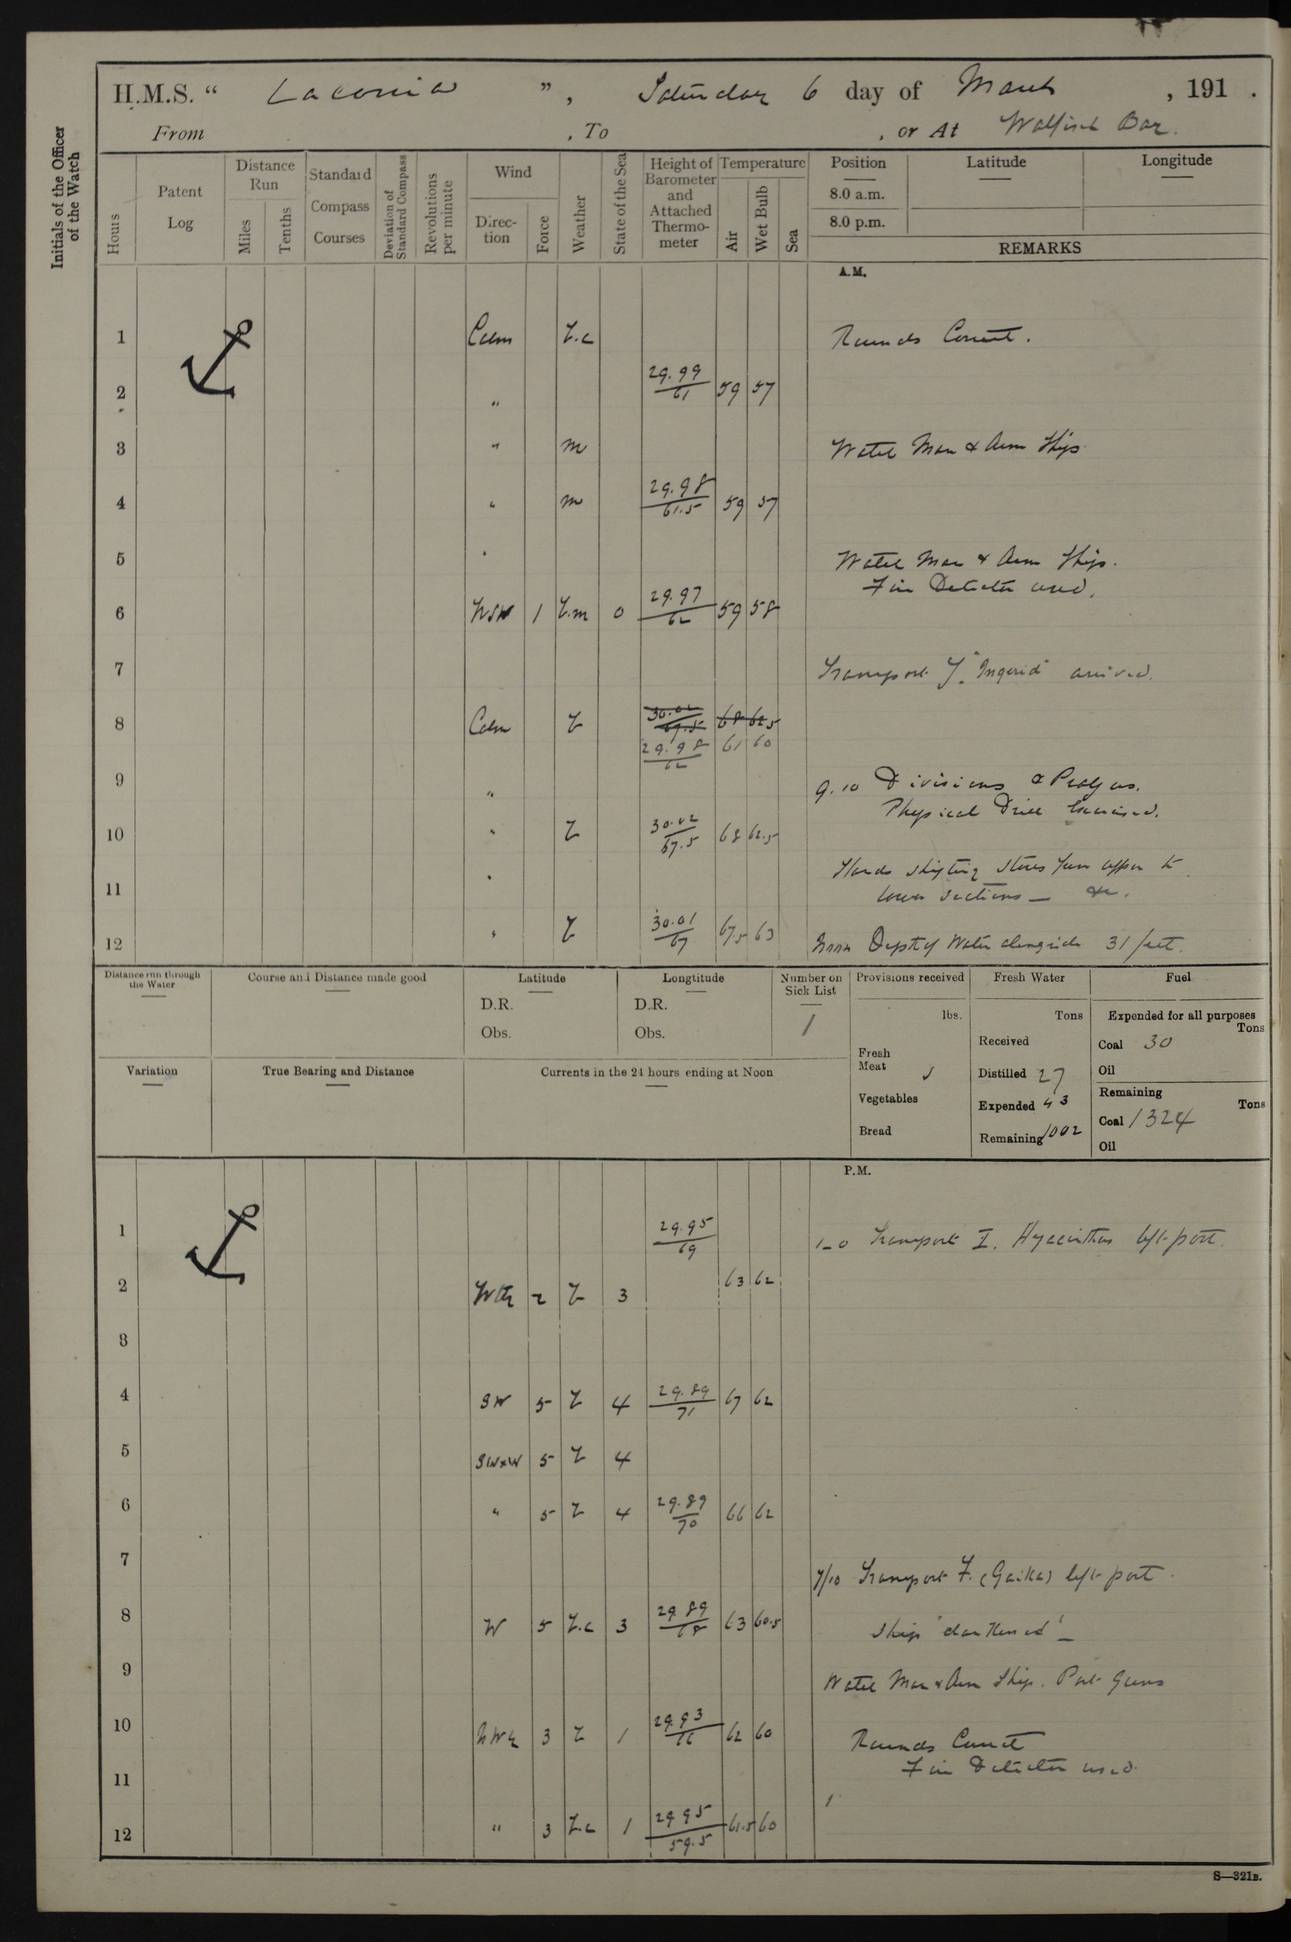 H.M.S. “ Laconia ”, Saturday 6 day of March , 191 .
From , To , or At Walfisch Bay.
Initials of the Officer of the Watch
Hours
Patent Log
Distance Run
Miles
Tenths
Standard Compass Courses
Deviation of Standard Compass
Revolutions per minute
Wind
Direction
Force
Weather
State of the Sea
Height of Barometer and Attached Thermometer
Temperature
Air
Wet Bulb
Sea
Position Latitude Longitude
8.0 a.m.
8.0 p.m.
REMARKS
A.M.
1 Calm b.c Rounds Correct.
2 " 29.99/61 59 57
3 " m Watch Man & Arm Ship
4 " m 29.98/61.5 59 57
5 " Watch Man & Arm Ship.
Fire Detector used.
6 WSW 1 b.m 0 29.97/62 59 58
7 Transport J. "Ingerid" arrived.
8 Calm b 30.02/67.5 68 62.5
29.98/62 61 60
9 " 9.10 Divisions & Prayers.
Physical Drill Exercised.
10 " b 30.02/67.5 68 62.5
Hands shifting stores from upper to
11 " lower sections — &c.
12 " b 30.01/67 67.5 63 Noon Depth of Water alongside 31 feet.
Distance run through the Water
Course and Distance made good
Latitude
D.R.
Obs.
Longtitude
D.R.
Obs.
Number on Sick List
1
Provisions received
lbs.
Fresh Meat
Vegetables
Bread
Fresh Water
Tons
Received
Distilled 27
Expended 43
Remaining 1002
Fuel
Expended for all purposes
Tons
Coal 30
Oil
Remaining
Tons
Coal 1324
Oil
Variation
True Bearing and Distance
Currents in the 24 hours ending at Noon
P.M.
1 29.95/69 1-0 Transport I. Hyacinthus left port.
2 2 b 3 63 62
3
4 SW 5 b 4 29.89/71 67 62
5 SWxW 5 b 4
6 " 5 b 4 29.89/70 66 62
7 7/10 Transport F. (Gaika) left port.
8 W 5 b.c 3 29.89/68 63 60.5 Ship 'darkened' —
9 Watch Man & Arm Ship. Port Guns
10 3 b 1 29.93/66 62 60 Rounds Correct
Fire Detector used.
11
12 " 3 b.c 1 29.95/59.5 61.5 60
S—321B.